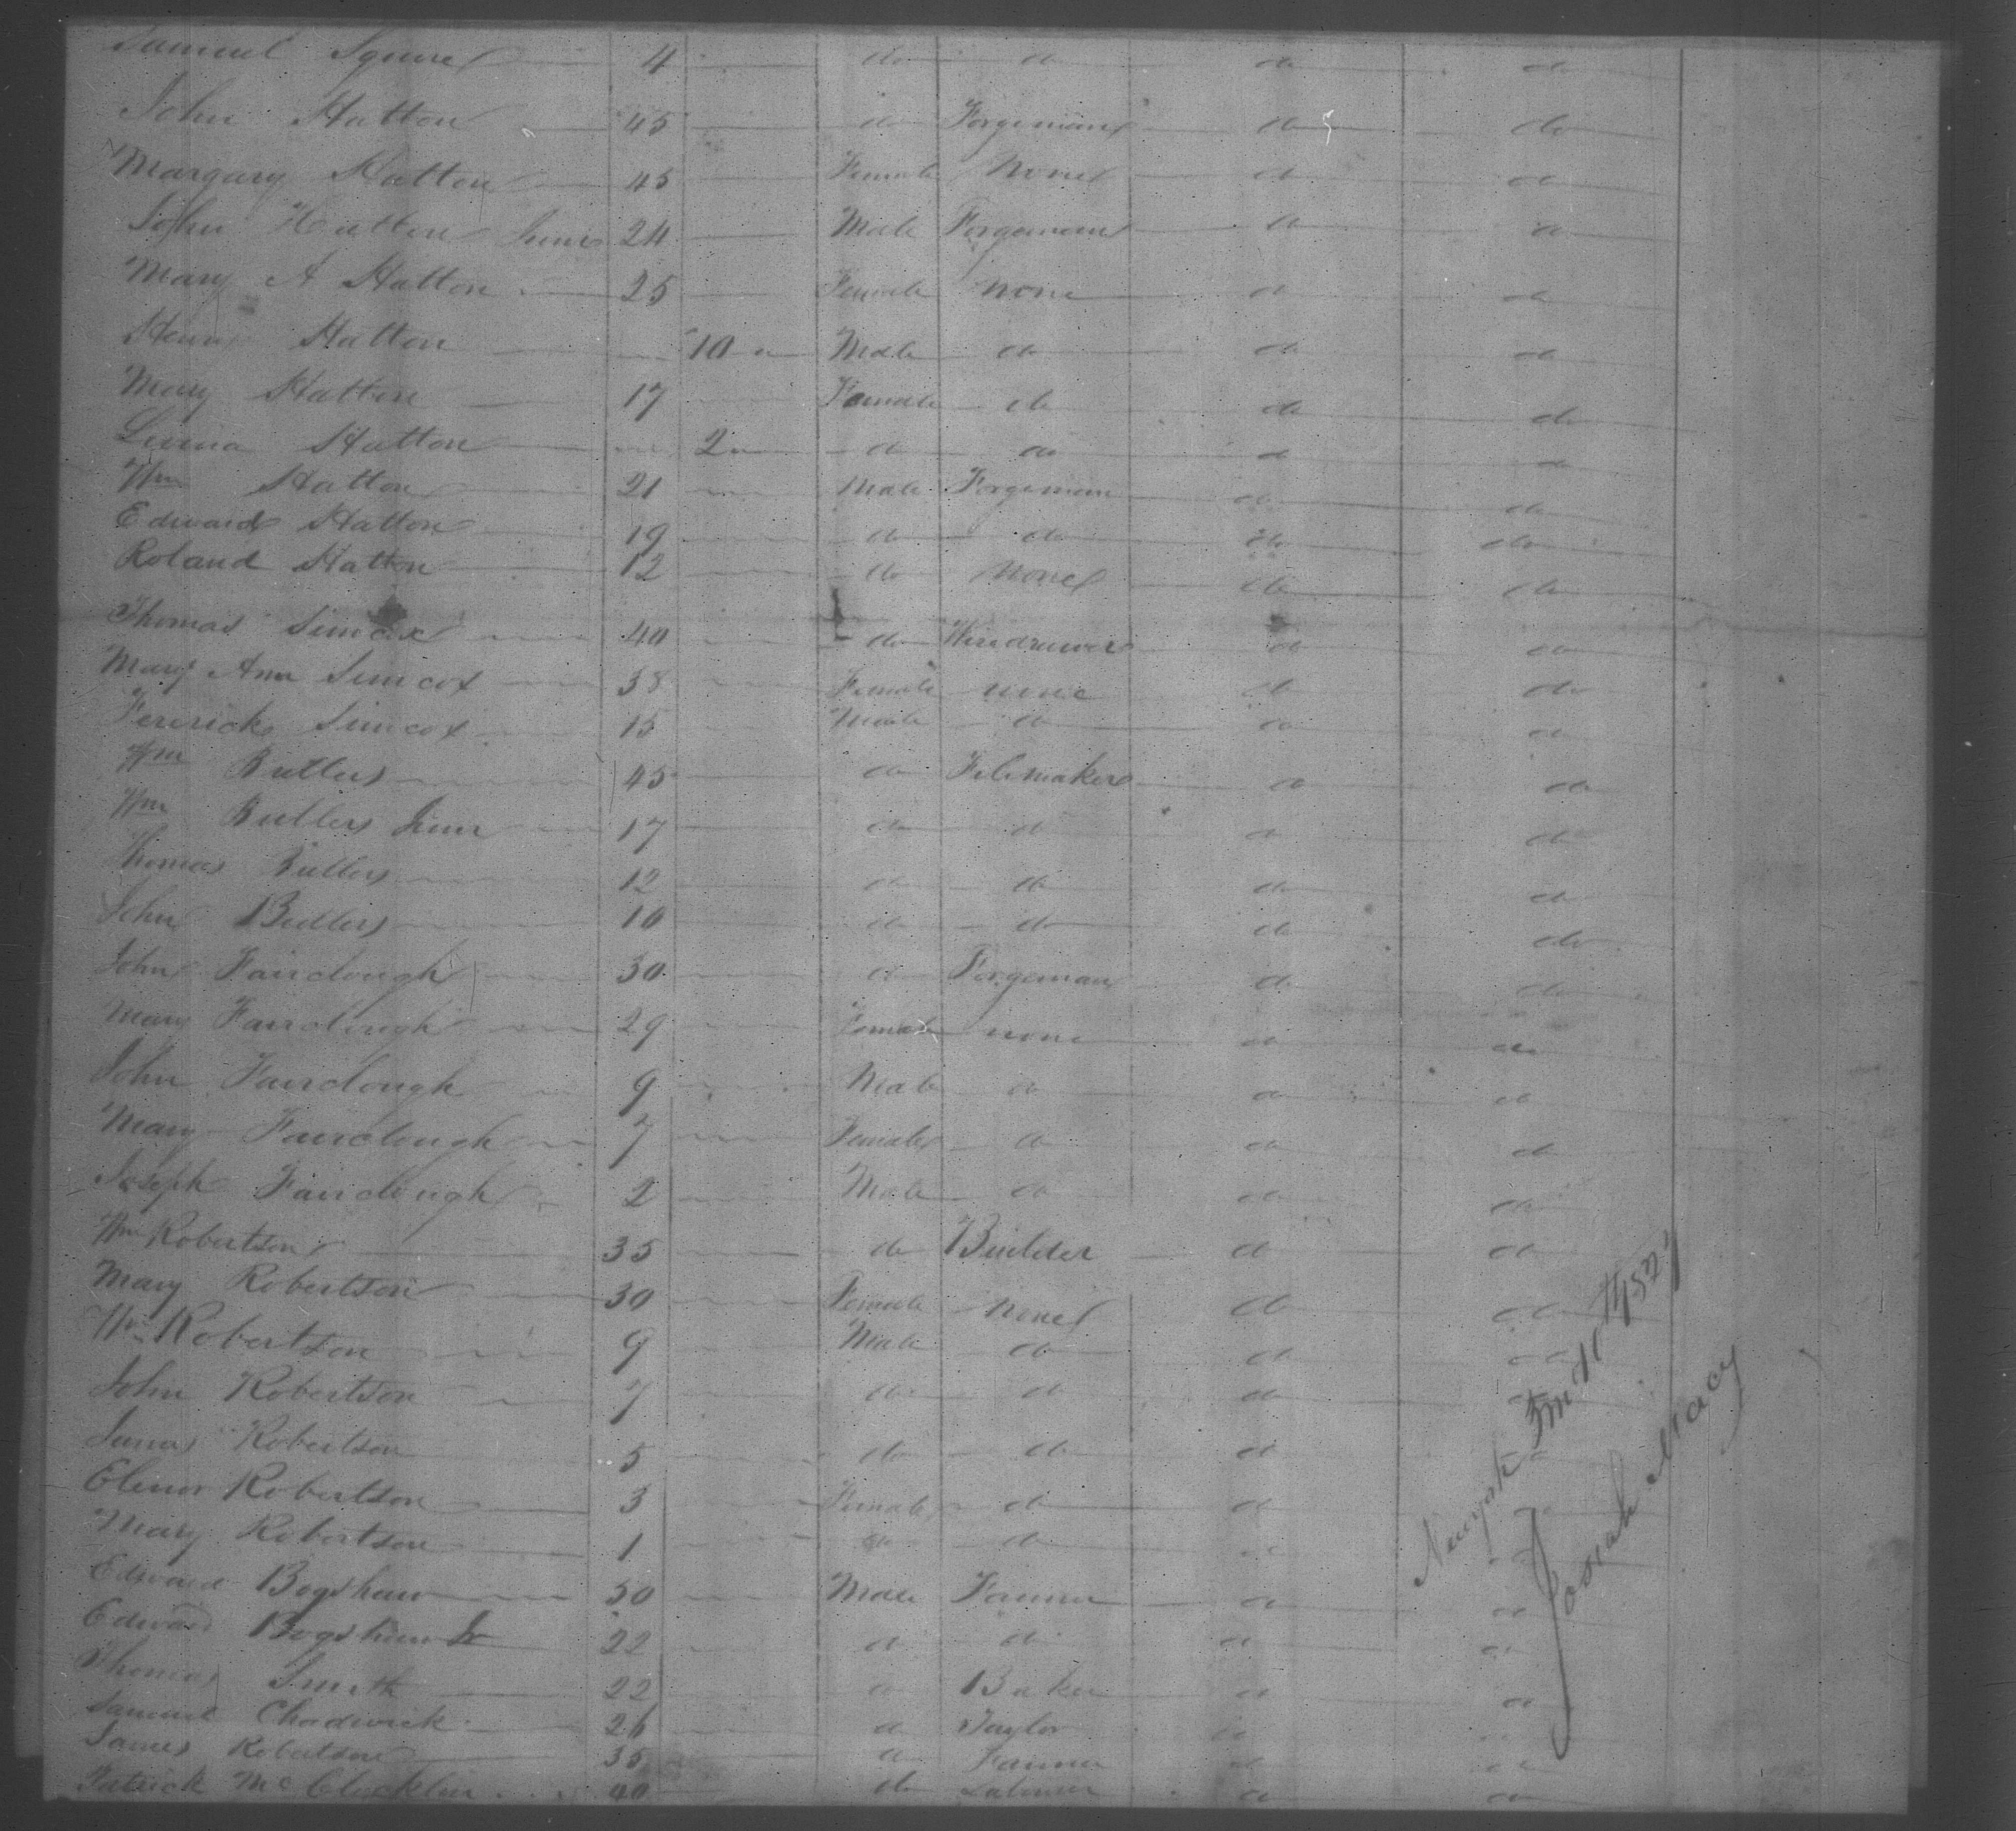 Samuel Squire 4 do do do do
John Hatton 45 do Forgeman do do
Margary Hatton 45 Female None do do
John Hatton Junr 24 Male Forgeman do do
Mary A Hatton 25 Female none do do
Henry Hatton 10 m Male do do do
Mary Hatton 17 Female do do do
Hatton 2 m do do do do
Wm Hatton 21 Male Forgeman do do
Edward Hatton 19 do do do do
Roland Hatton 12 do None do do
Thomas Simcox 40 do Wiredrawer do do
Mary Ann Simcox 38 Female none do do
Fererick Simcox 15 Male do do do
Wm Butlers 45 do Filemaker do do
Wm Butlers Junr 17 do do do do
Thomas Butlers 12 do do do do
John Butlers 10 do do do do
John Fairclough 30 do Forgeman do do
Mary Fairclough 29 Female none do do
John Fairclough 9 Male do do do
Mary Fairclough 7 Female do do do
Joseph Fairclough 2 Male do do do
Wm Robertson 35 do Builder do do
Mary Robertson 30 Female None do do
Wm Robertson 9 Male do do do
John Robertson 7 do do do do
James Robertson 5 do do do do
Elenor Robertson 3 Female do do do
Mary Robertson 1 do do do do
Edward Bogshaw 50 Male Farmer do do
Edward Bogshaw Jr 22 do do do do
Thomas Smith 22 do Baker do do
Samuel Chadwick 26 do Taylor do do
James Robertson 35 do Farmer do do
Patrick Mc 40 do Labourer do do
Newyork
Josiah Macy